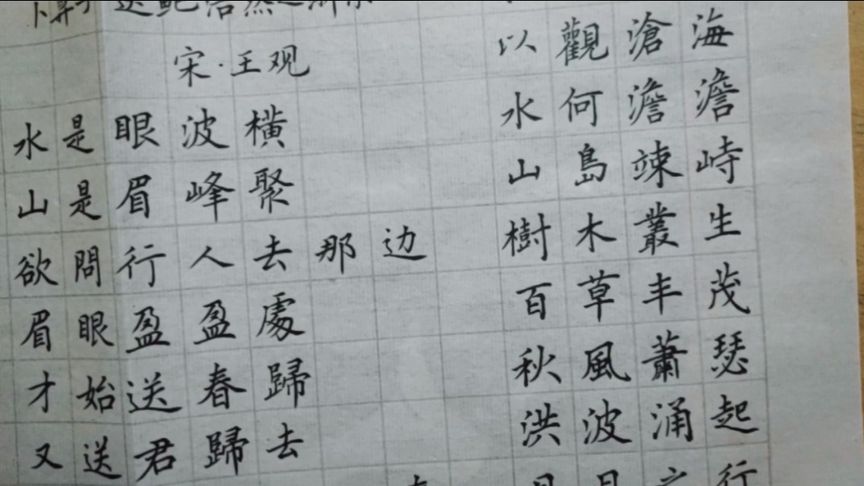 宋·王观
水是眼波橫
山是眉峰聚
欲問行人去那边
眉眼盈盈處
才始送春歸
又送君歸去
以觀滄海
水何澹澹
山島竦峙
樹木叢生
百草丰茂
秋風蕭瑟
洪波涌起